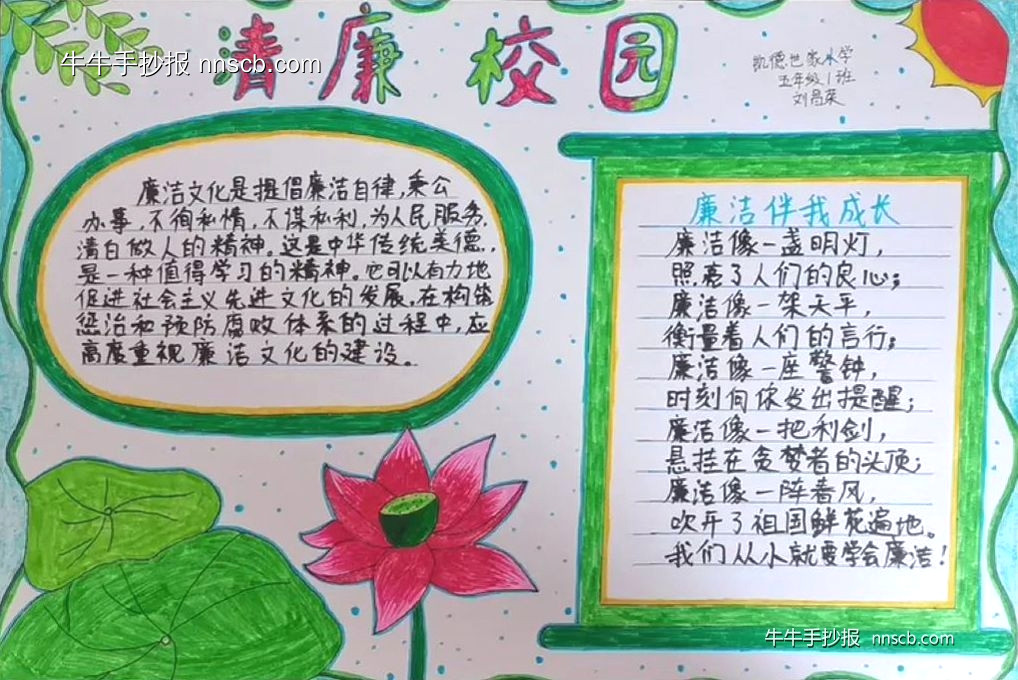 清廉校园
牛牛手抄报 nnscb.com
凯德世家小学
五年级1班
刘昌荣
廉洁文化是提倡廉洁自律,秉公
办事,不徇私情,不谋私利,为人民服务,
清白做人的精神。这是中华传统美德,
是一种值得学习的精神。它可以有力地
促进社会主义先进文化的发展,在构筑
惩治和预防腐败体系的过程中,应
高度重视廉洁文化的建设。
廉洁伴我成长
廉洁像一盏明灯,
照亮了人们的良心;
廉洁像一架天平,
衡量着人们的言行;
廉洁像一座警钟,
时刻向你发出提醒;
廉洁像一把利剑,
悬挂在贪婪者的头顶;
廉洁像一阵春风,
吹开了祖国鲜花遍地。
我们从小就要学会廉洁!
牛牛手抄报 nnscb.com